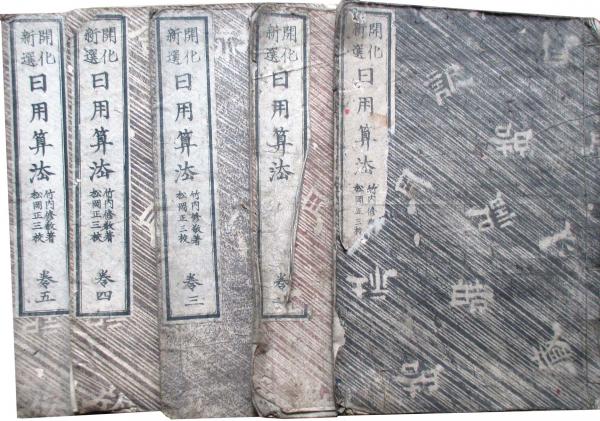 開化
新選
日用算法
竹内修敬著
松岡正三校
開化
新選
日用算法
開化
新選
日用算法
竹内修敬著
松岡正三校
巻三
開化
新選
日用算法
竹内修敬著
松岡正三校
巻四
開化
新選
日用算法
竹内修敬著
松岡正三校
巻五